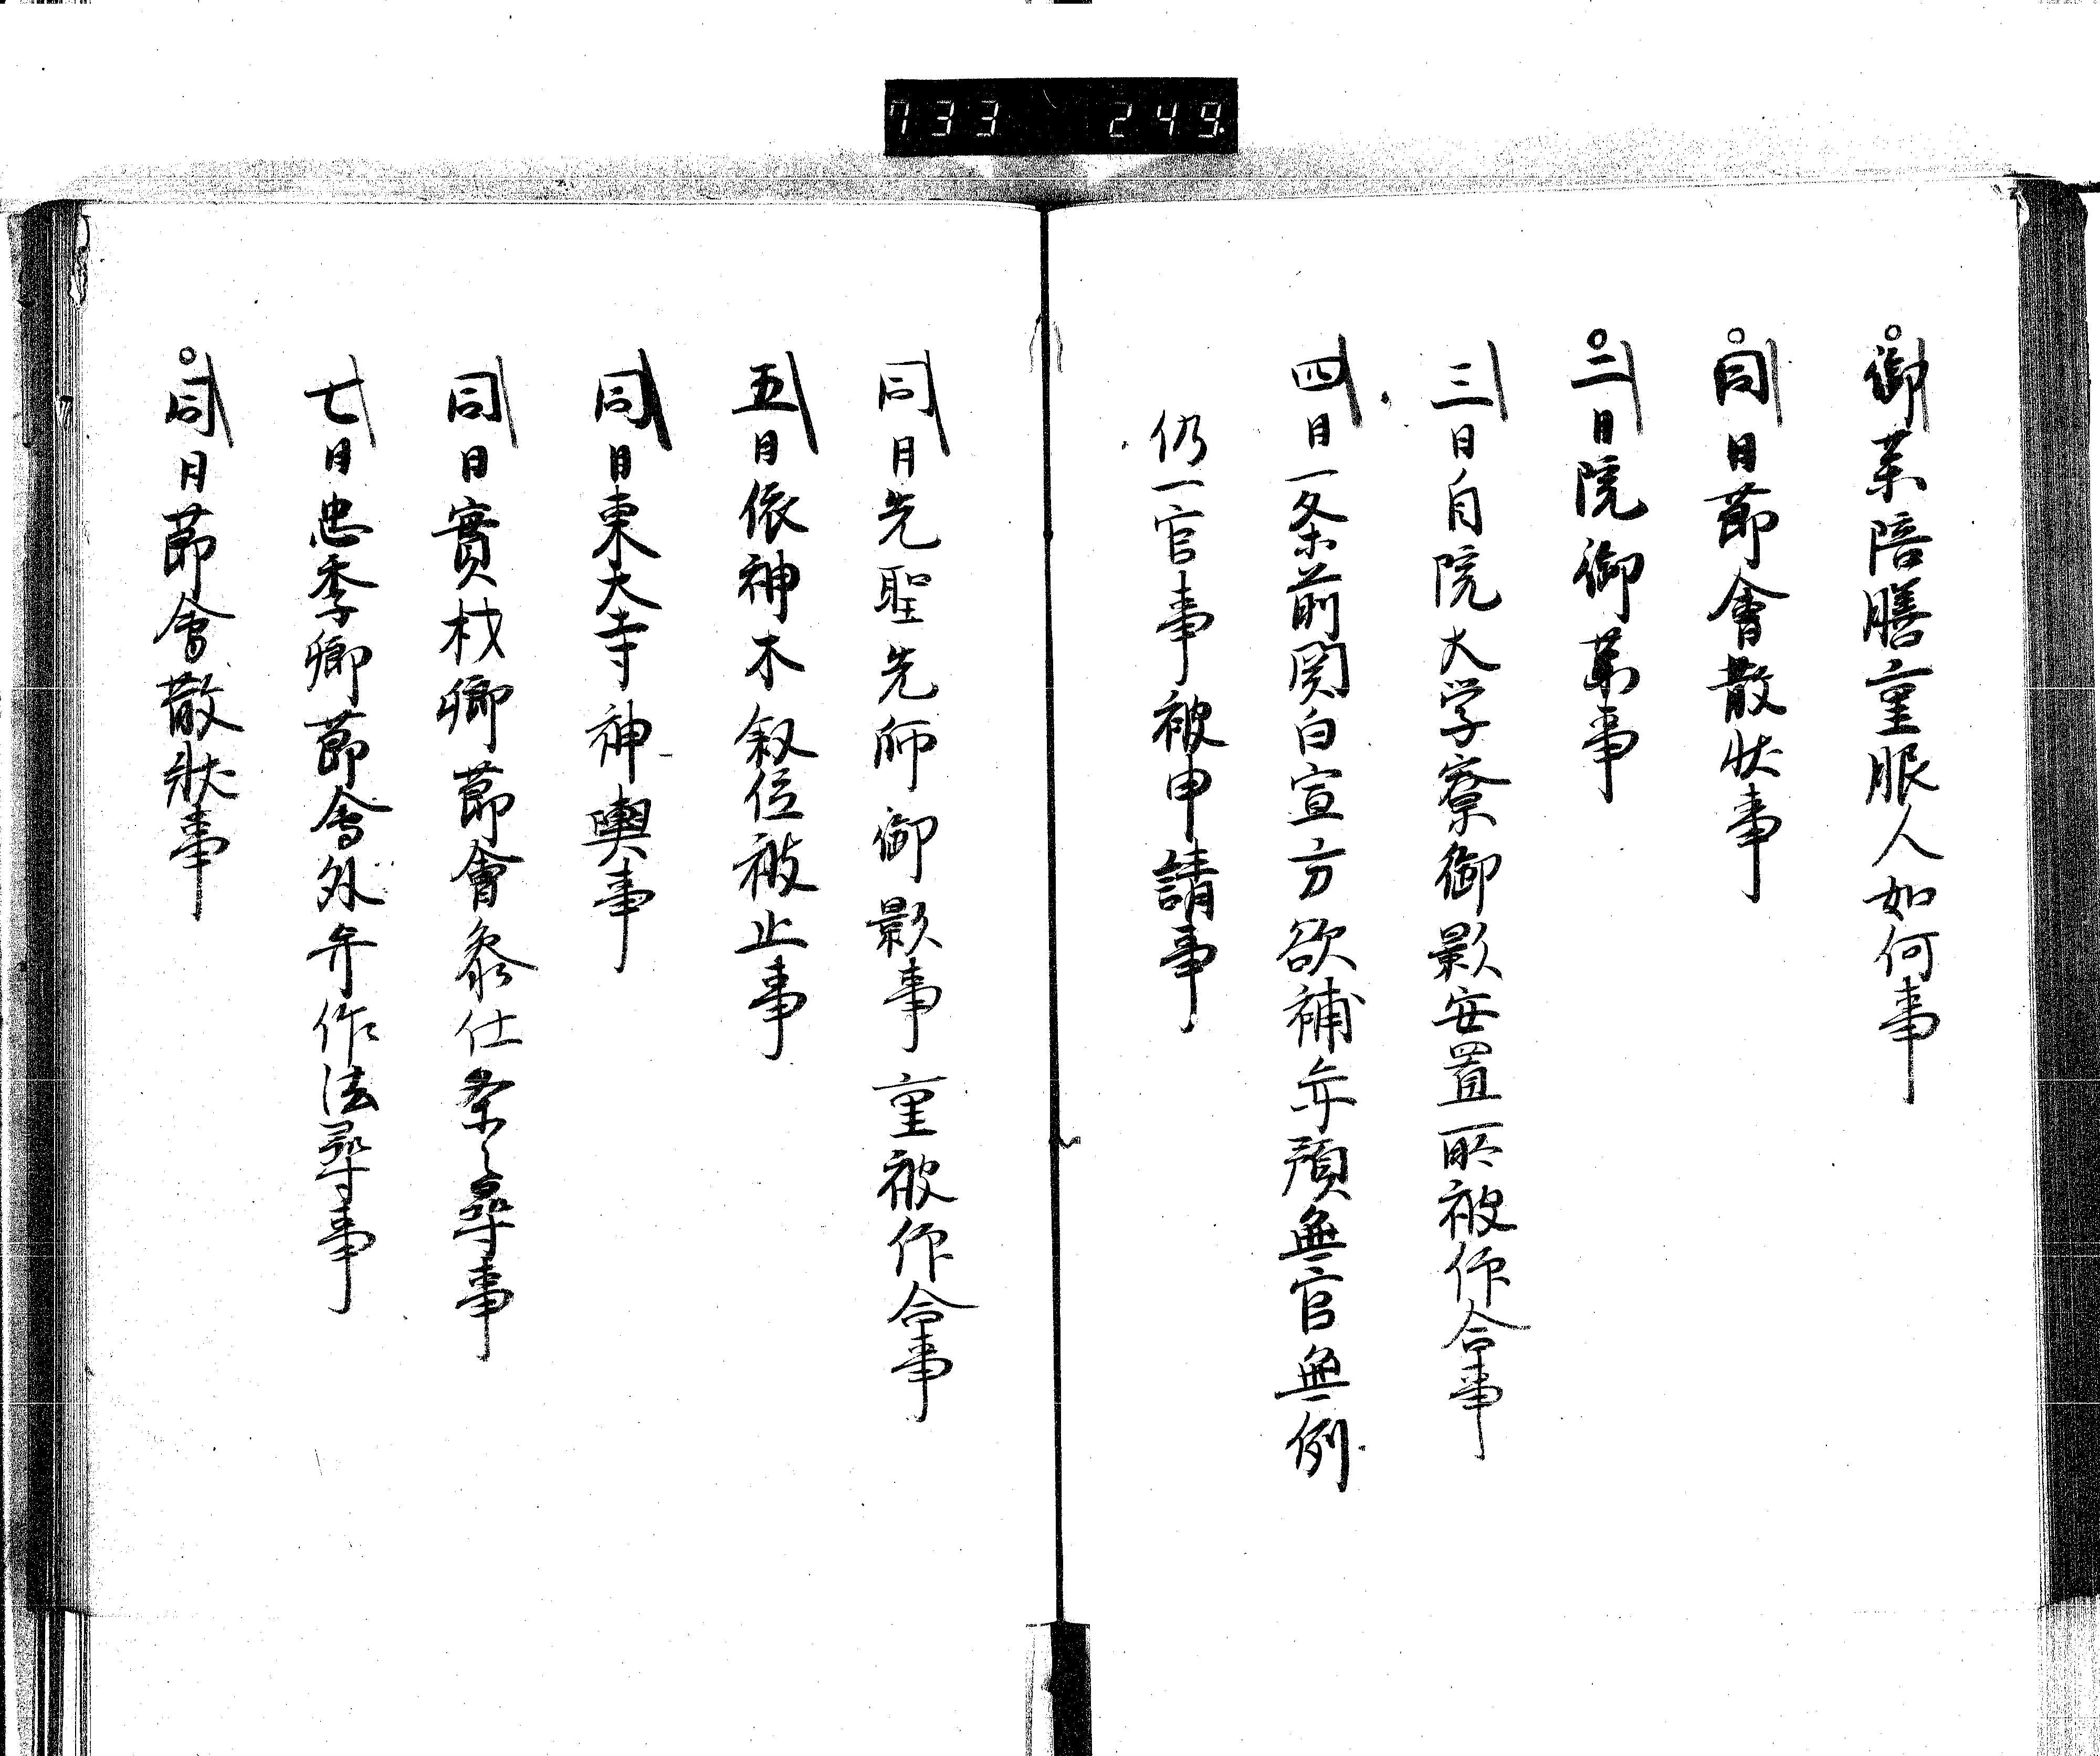 733 249
御薬陪膳重服人如何事
同日節會散状事
二日院御薬事
三日自院大学寮御影安置所被仰合事
四日一条前関白宣方欲補弁頭無官無例
仍一官事被申請事
同日先聖先師御影事重被仰合事
五日依神木叙位被止事
同日東大寺神輿事
同日實材卿節會参仕条々尋事
七日忠季卿節會外弁作法尋事
同日節會散状事